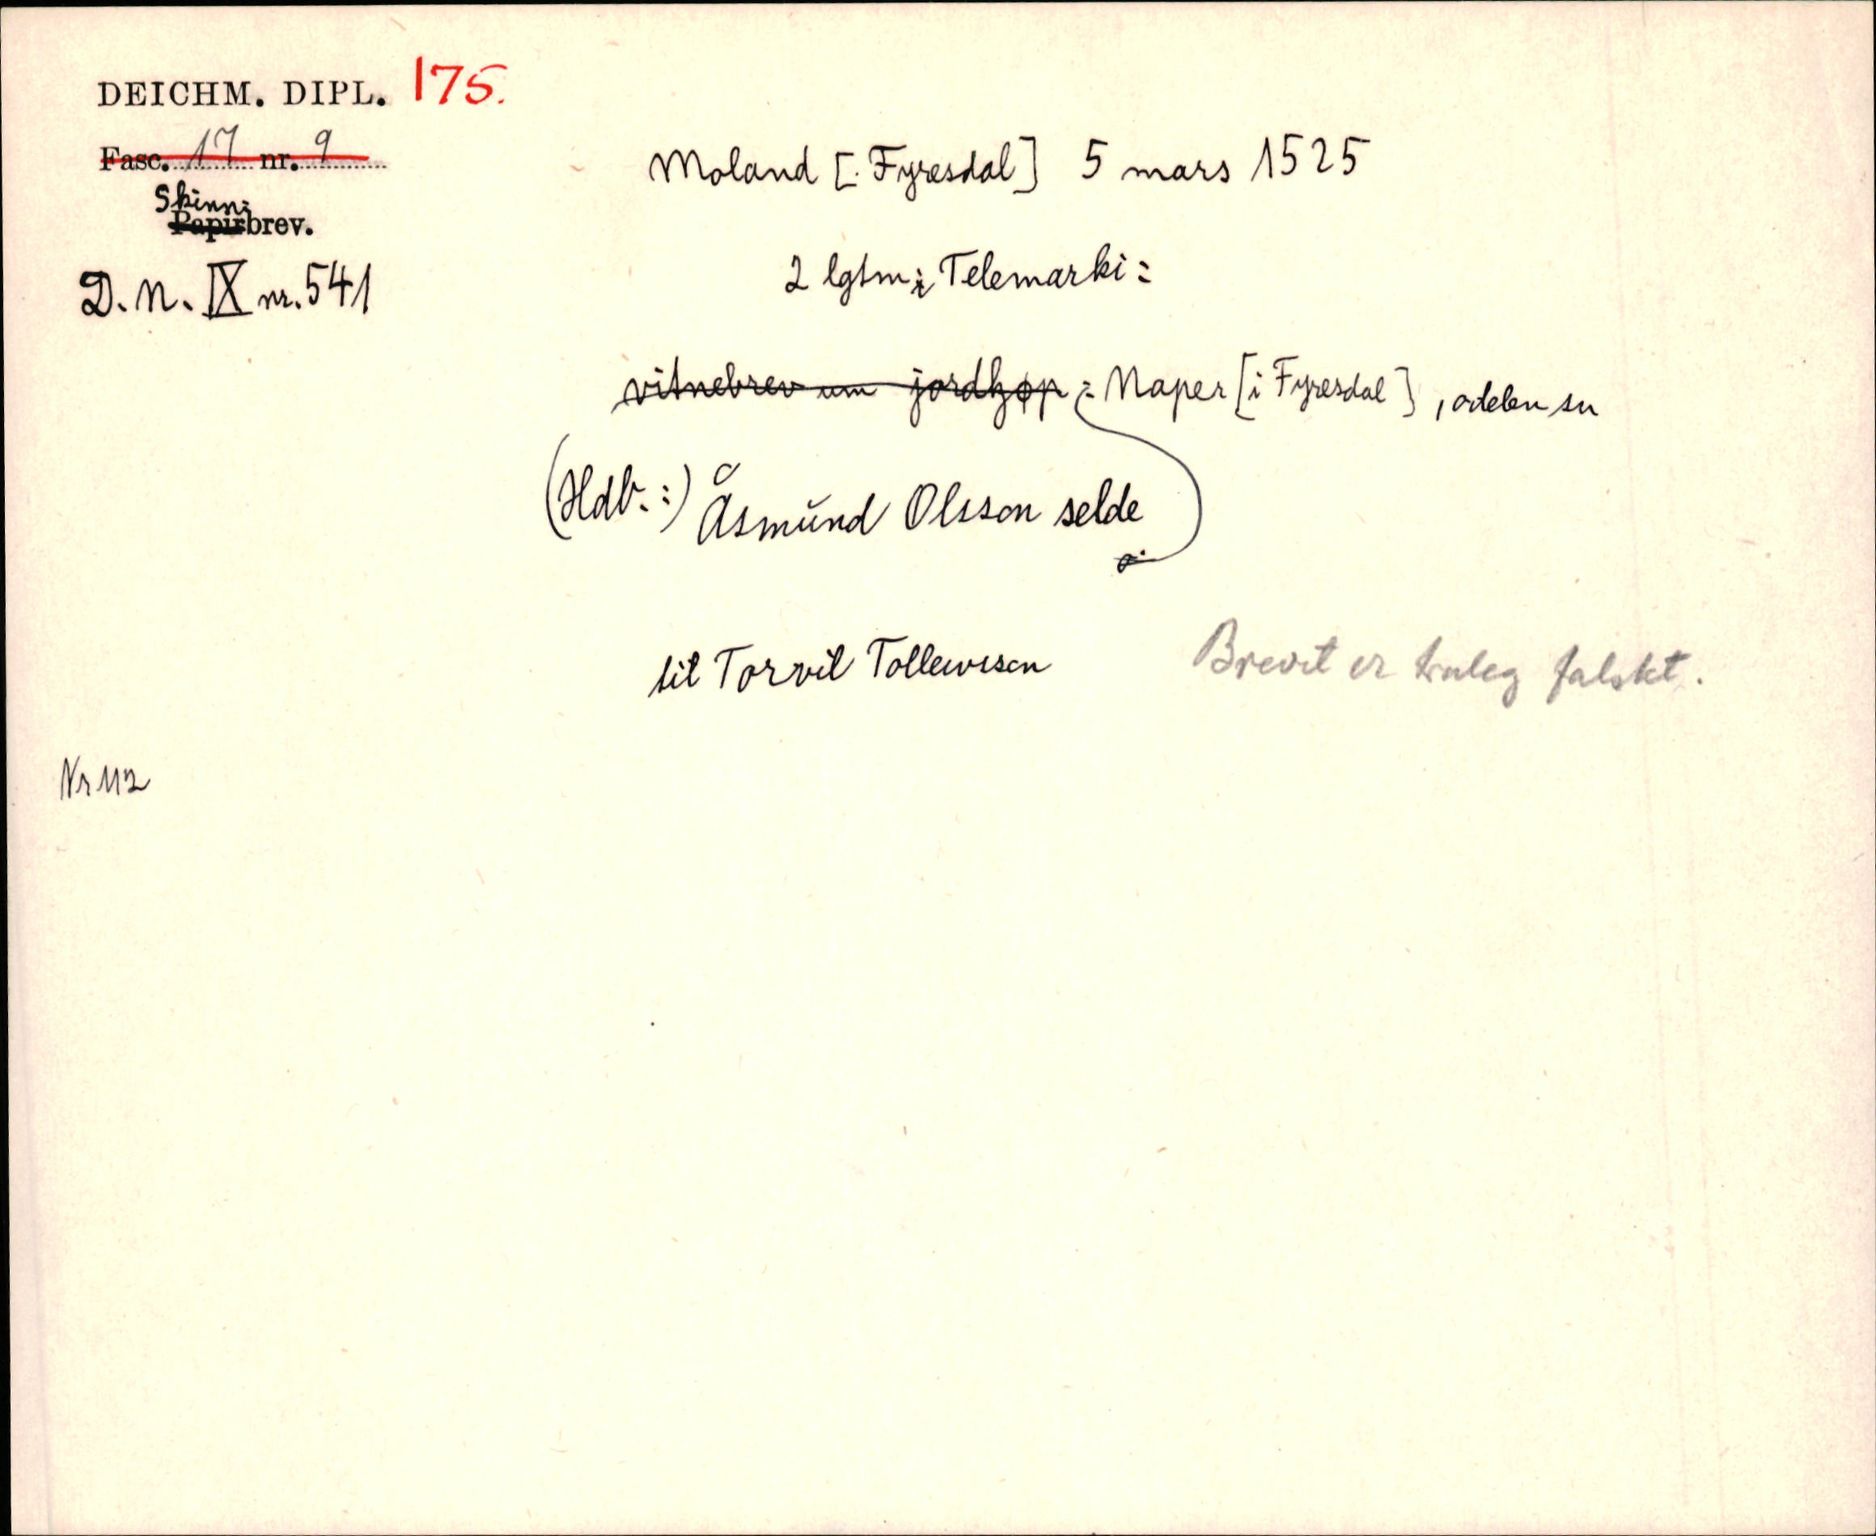 DEICHM. DIPL. 175.
Fasc. 17 nr. 9
Skinn:
Papirbrev.
D. N. IX nr. 541
Moland [: Fyresdal] 5 mars 1525
2 lgtm i Telemarki:
vitnebrev um jordkøp : Naper [i Fyresdal], odelen sn
(Hdb.:) Åsmund Olsson selde
til Torvil Tollewsson
Brevit er truleg falskt.
Nr 112